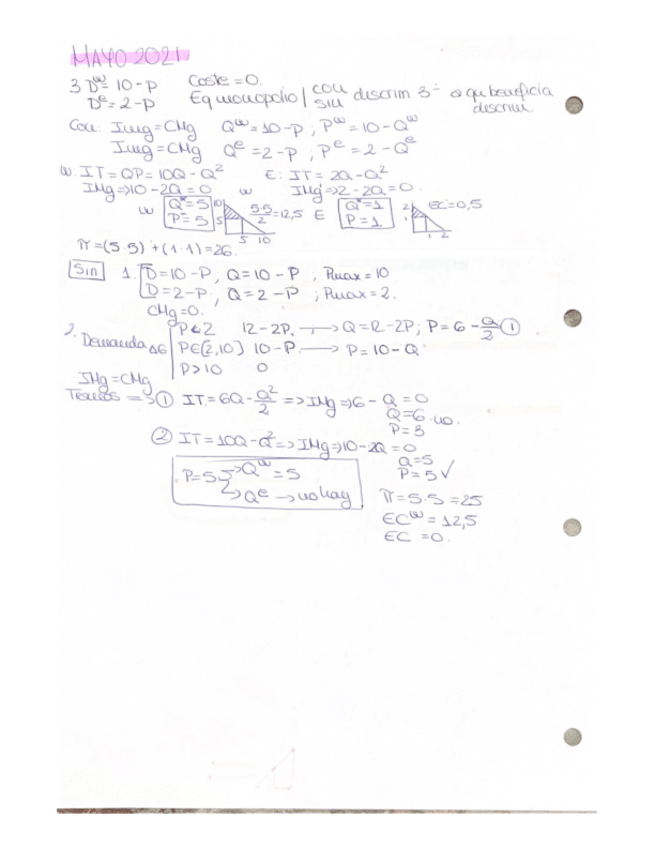 MAYO 2021
3 Dʷ= 10-P Coste = 0.
Dᵉ= 2-P Eq monopolio | con / sin discrim 3º a qu beneficia discrim.
Con: Img = CMg Qʷ = 10-P ; Pʷ = 10-Qʷ
Img = CMg Qᵉ = 2-P ; Pᵉ = 2-Qᵉ
W: IT = QP = 10Q - Q² E: IT = 2Q - Q²
IMg => 10-2Q = 0 IMg => 2-2Q = 0
W Q* = 5 P = 5 10 5 5 10 5·5/2 = 12,5 E Q* = 1 P = 1 2 1 1 2 EC = 0,5
π = (5·5) + (1·1) = 26
Sin 1. D = 10-P, Q = 10-P ; Pmax = 10
D = 2-P, Q = 2-P ; Pmax = 2.
CMg = 0.
2. Demanda AG P<2 12-2P. → Q = 12-2P; P = 6 - Q/2 ①
P∈[2,10] 10-P. → P = 10-Q
P>10 0
IMg = CMg
Tramos => ① IT = 6Q - Q²/2 => IMg => 6 - Q = 0
Q = 6 no.
P = 3
② IT = 10Q - Q² => IMg => 10-2Q = 0
Q = 5
P = 5 ✓
P = 5 → Qʷ = 5
→ Qᵉ → no hay
π = 5·5 = 25
ECʷ = 12,5
EC = 0.